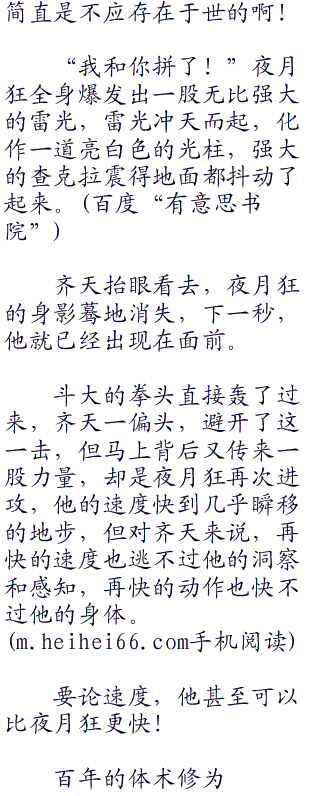 简直是不应存在于世的啊！
“我和你拼了！”夜月
狂全身爆发出一股无比强大
的雷光，雷光冲天而起，化
作一道亮白色的光柱，强大
的查克拉震得地面都抖动了
起来。(百度“有意思书
院”)
齐天抬眼看去，夜月狂
的身影蓦地消失，下一秒，
他就已经出现在面前。
斗大的拳头直接轰了过
来，齐天一偏头，避开了这
一击，但马上背后又传来一
股力量，却是夜月狂再次进
攻，他的速度快到几乎瞬移
的地步，但对齐天来说，再
快的速度也逃不过他的洞察
和感知，再快的动作也快不
过他的身体。
(m.heihei66.com手机阅读)
要论速度，他甚至可以
比夜月狂更快！
百年的体术修为